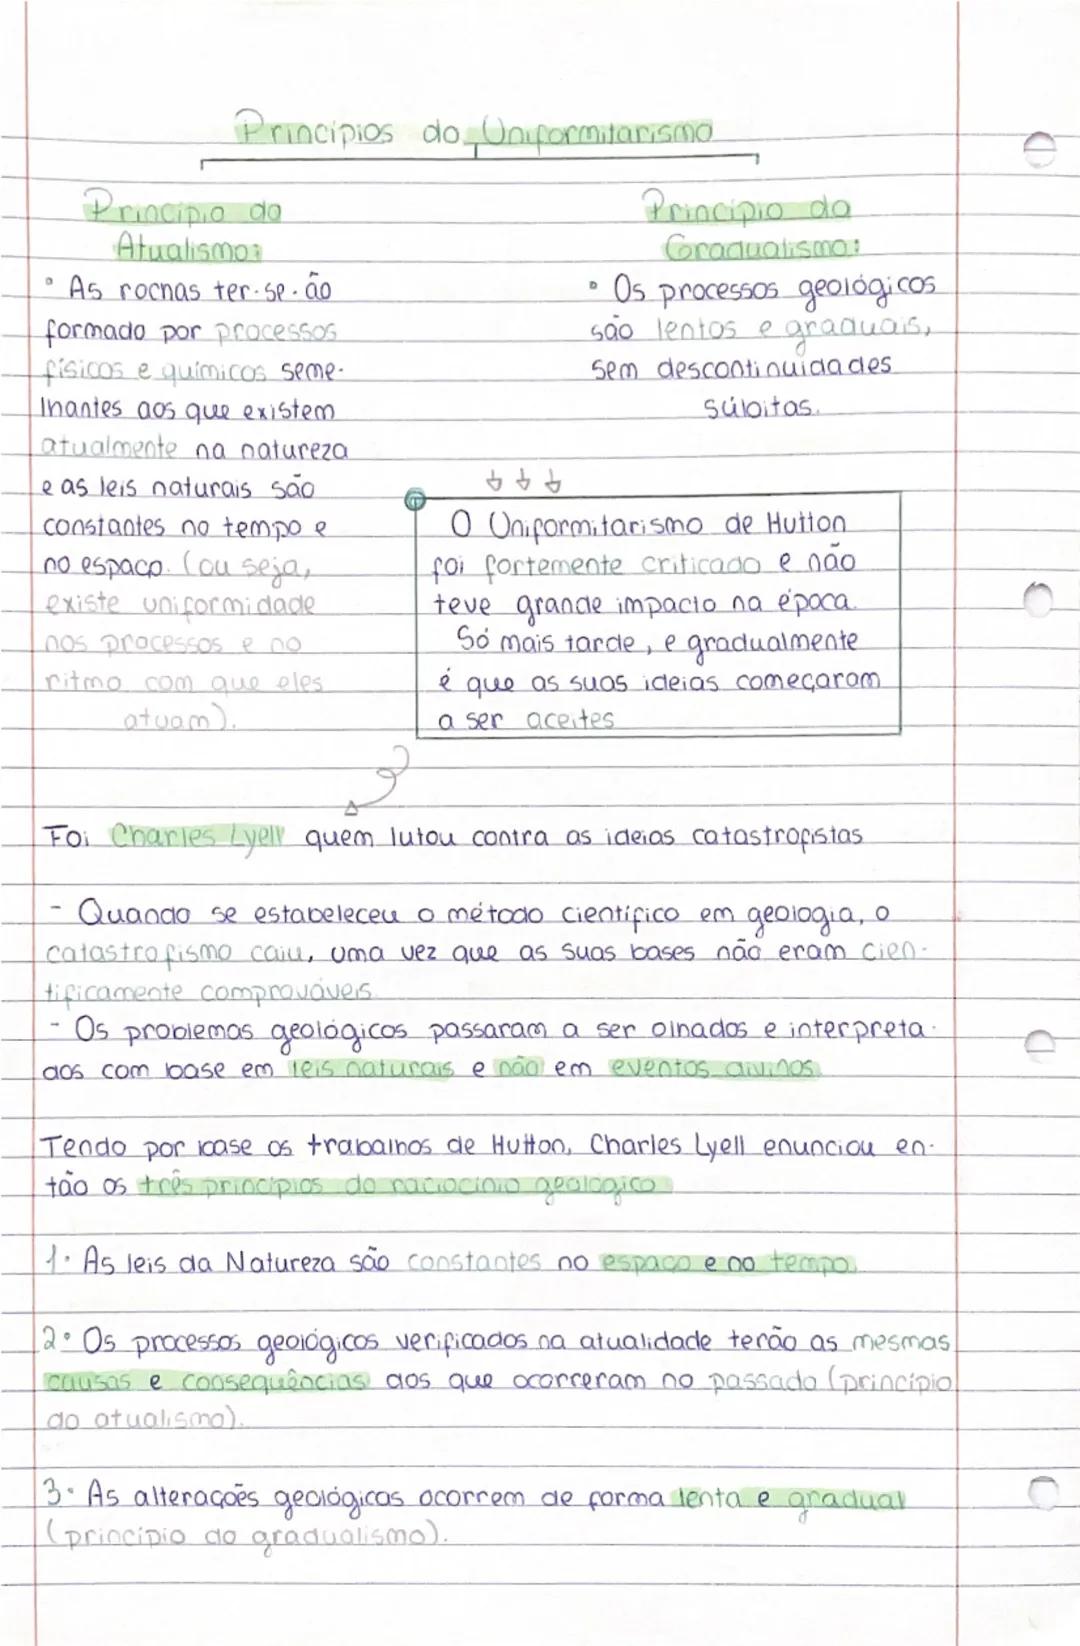 Princípios do Uniformitarismo
Princípio do
Atualismo:
• As rochas ter-se-ão
formado por processos
físicos e químicos seme-
lhantes aos que existem
atualmente na natureza
e as leis naturais são
constantes no tempo e
no espaço. (ou seja,
existe uniformidade
nos processos e no
ritmo com que eles
atuam).
Princípio do
Gradualismo:
• Os processos geológicos
são lentos e graduais,
sem descontinuidades
súbitas.
O Uniformitarismo de Hutton
foi fortemente criticado e não
teve grande impacto na época.
Só mais tarde, e gradualmente
é que as suas ideias começaram
a ser aceites
Foi Charles Lyell quem lutou contra as ideias catastrofistas
- Quando se estabeleceu o método científico em geologia, o
catastrofismo caiu, uma vez que as suas bases não eram cien-
tificamente comprováveis.
- Os problemas geológicos passaram a ser olhados e interpreta-
dos com base em leis naturais e não em eventos divinos.
Tendo por base os trabalhos de Hutton, Charles Lyell enunciou en-
tão os três princípios do raciocínio geológico
1. As leis da Natureza são constantes no espaço e no tempo.
2. Os processos geológicos verificados na atualidade terão as mesmas
causas e consequências dos que ocorreram no passado (princípio
do atualismo).
3. As alterações geológicas ocorrem de forma lenta e gradual
(princípio do gradualismo).